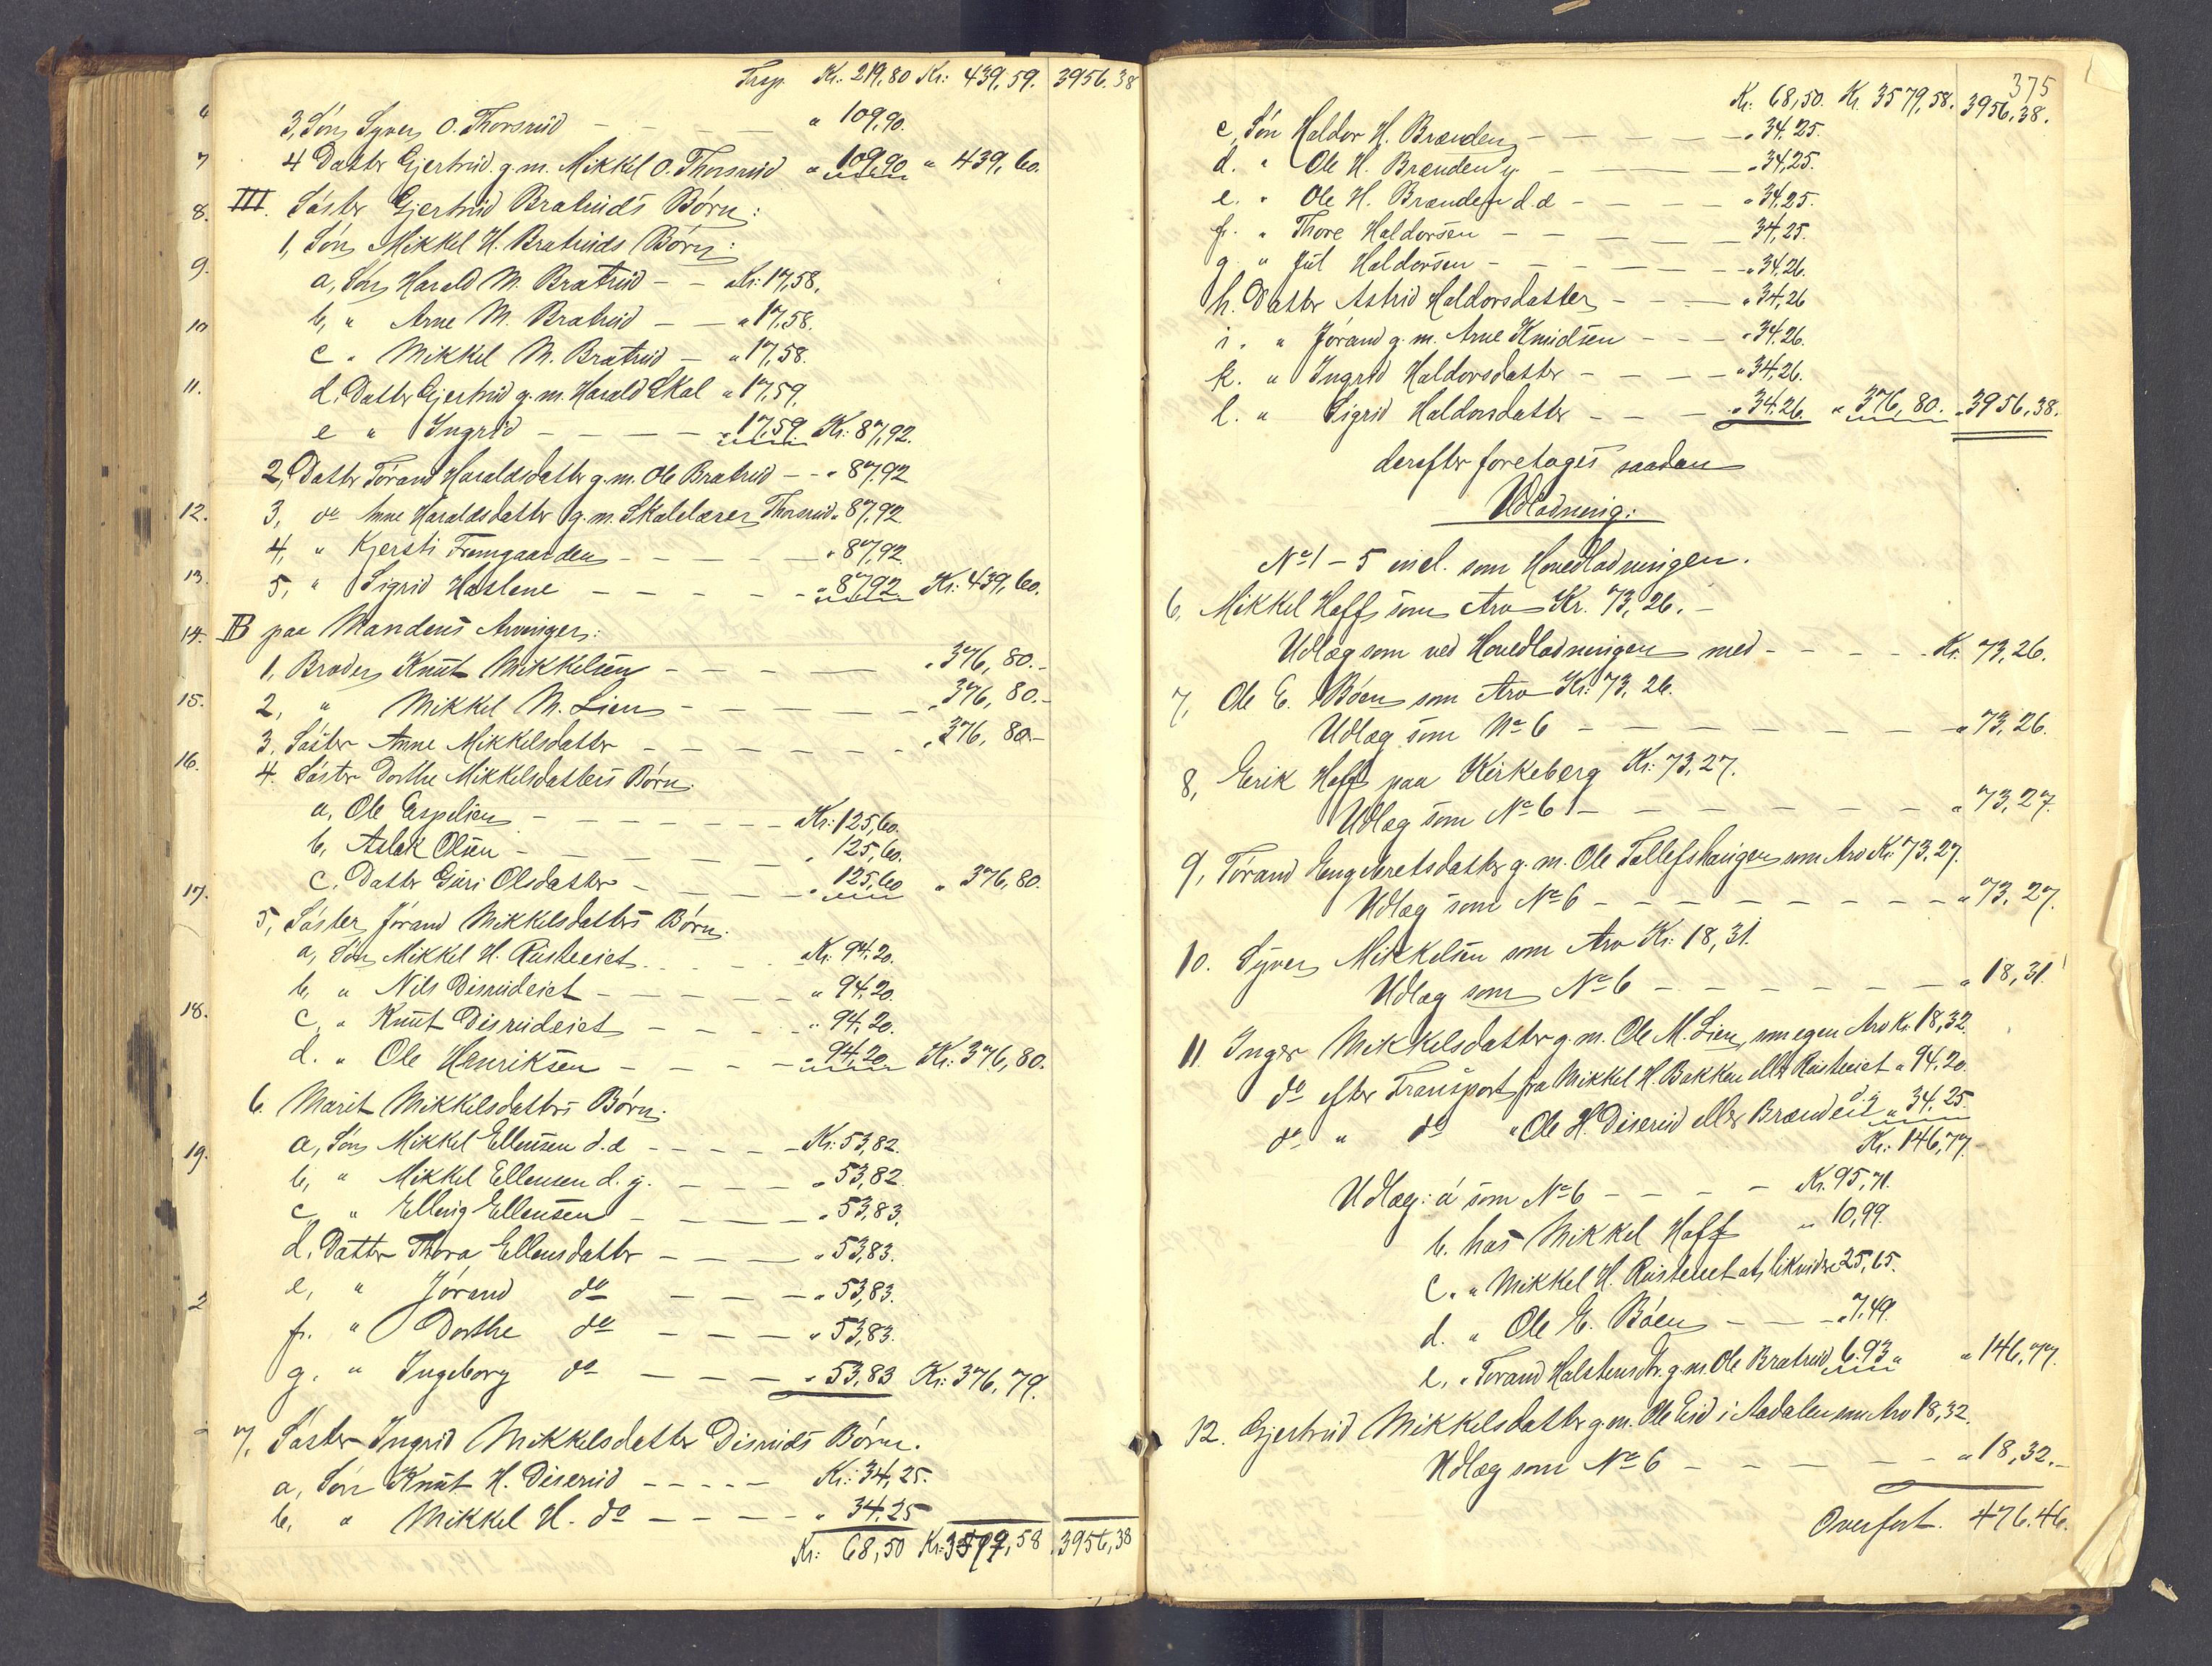 Trsp. Kr. 219,80 Kr: 439,59. 3956.38
3, Søn Syver O. Thorsrud — — — — " 109,90.
4 Datter Gjertrud g. m. Mikkel O. Thorsrud " 109,90 " 439,60.
III. Søster Gjertrud Bratruds Børn:
1, Søn Mikkel H. Bratruds Børn:
a, Søn Harald M. Bratrud — — Kr: 17,58.
b, " Arne M. Bratrud — — " 17,58.
c " Mikkel M. Bratrud — " 17,58.
d. Datter Gjertrud g. m. Harald Skal " 17,59.
e " Ingrid — — — — " 17,59. Kr: 87,92.
2, Datter Jørand Haraldsdatter g. m. Ole Bratrud — — " 87,92
3, do Anne Haraldsdatter g. m. Skolelærer Thorsrud " 87,92
4, " Kjersti Framgaarden — — — — " 87,92
5, " Sigrid Haslene — — — — — " 87,92 Kr: 439,60.
B paa Mandens Arvinger:
1, Broder Knut Mikkelsen — — — — " 376,80.-
2, " Mikkel M. Lien — — — — — " 376,80.-
3. Søster Anne Mikkelsdatter — — — — — — " 376,80-
4. Søster Dorthe Mikkelsdatters Børn.
a, Ole Espelien — — — — — — Kr: 125,60.
b, Aslak Olsen — — — — — " 125,60.
c. Datter Guri Olsdatter — — — — " 125,60 " 376,80.
5, Søster Jørand Mikkelsdatters Børn.
a, Søn Mikkel H. Rusteeiet — — Kr: 94,20.
b, " Nils Disrudeiet — — — — " 94,20.
c, " Knut Disrudeiet — — — " 94,20.
d. " Ole Henriksen — — — — " 94,20 Kr: 376,80.
6. Marit Mikkelsdatters Børn.
a, Søn Mikkel Ellensen d. æ — — — — Kr: 53,82.
b, " Mikkel Ellensen d. y. — — — " 53,82.
c " Elling Ellensen — — — — " 53,83.
d. Datter Thora Ellensdatter — — — " 53,83.
e, " Jørand do — — — " 53,83.
f. " Dorthe do — — — " 53,83.
g. " Ingeborg do — — — " 53,83 Kr: 376,79.
7, Søster Ingrid Mikkelsdatter Disruds Børn.
a, Søn Knut H. Diserud — — — — Kr: 34,25.
b, " Mikkel H. do — — — — " 34,25
Kr: 68,50 Kr: 3579,58 3956,38
6
7
8.
9.
10
11.
12.
13.
14.
15.
16.
17.
18.
19.
2
375
Kr. 68,50. Kr. 3579,58. 3956,38.
c, Søn Haldor H. Brænden — — — — " 34,25.
d. " Ole H. Brænden y. — — — " 34,25.
e. " Ole H. Brænden d. æ — — — — " 34,25.
f. " Thore Haldorsen — — — — — 34,25.
g " Jul Haldorsen — — — — — " 34,26.
h. Datter Astrid Haldorsdatter — — — " 34,26
i. " Jørand g. m. Arne Knudsen — — — " 34,26.
k. " Ingrid Haldorsdatter — — — — " 34,26.
l. " Sigrid Haldorsdatter — — — " 34,26 " 376,80. " 3956,38.
derefter foretages saadan
Udlodning:
No 1 - 5 incl. som Hovedlodningen.
6, Mikkel Hoff som Arv Kr. 73,26. -
Udlæg som ved Hovedlodningen med — — — — Kr. 73,26.
7, Ole E. Bøen som Arv Kr: 73,26.
Udlæg som No 6 — — — — — — " 73,26.
8, Erik Hoff paa Kirkeberg Kr: 73,27.
Udlæg som No 6 — — — — — — " 73,27.
9, Jørand Engebretsdatter g. m. Ole Tollefshaugen som Arv Kr. 73,27.
Udlæg som No 6 — — — — — — — — " 73,27.
10. Syver Mikkelsen som Arv Kr: 18,31.
Udlæg som No 6 — — — — — — " 18,31
11 Inger Mikkelsdatter g. m. Ole M. Lien, som egen Arv Kr. 18,32.
do efter Transport fra Mikkel H. Bakken eller Rusteeiet " 94,20.
do " do " Ole H. Diserud eller Brænden d. y " 34,25.
Kr: 146,77.
Udlæg: a som No 6 — — — — Kr. 95,71.
b. hos Mikkel Hoff " 10,99.
c. " Mikkel H. Rusteeiet at likvidere 25,65.
d. " Ole E. Bøen — — — " 7,49.
e, " Jørand Halstensdtr. g. m. Ole Bratrud 6.93 " " 146,77.
12. Gjertrud Mikkelsdatter g. m. Ole Eid i Aadalen som Arv 18,32.
Udlæg som No 6 — — — — — " 18,32.-
Overført. 476.46.